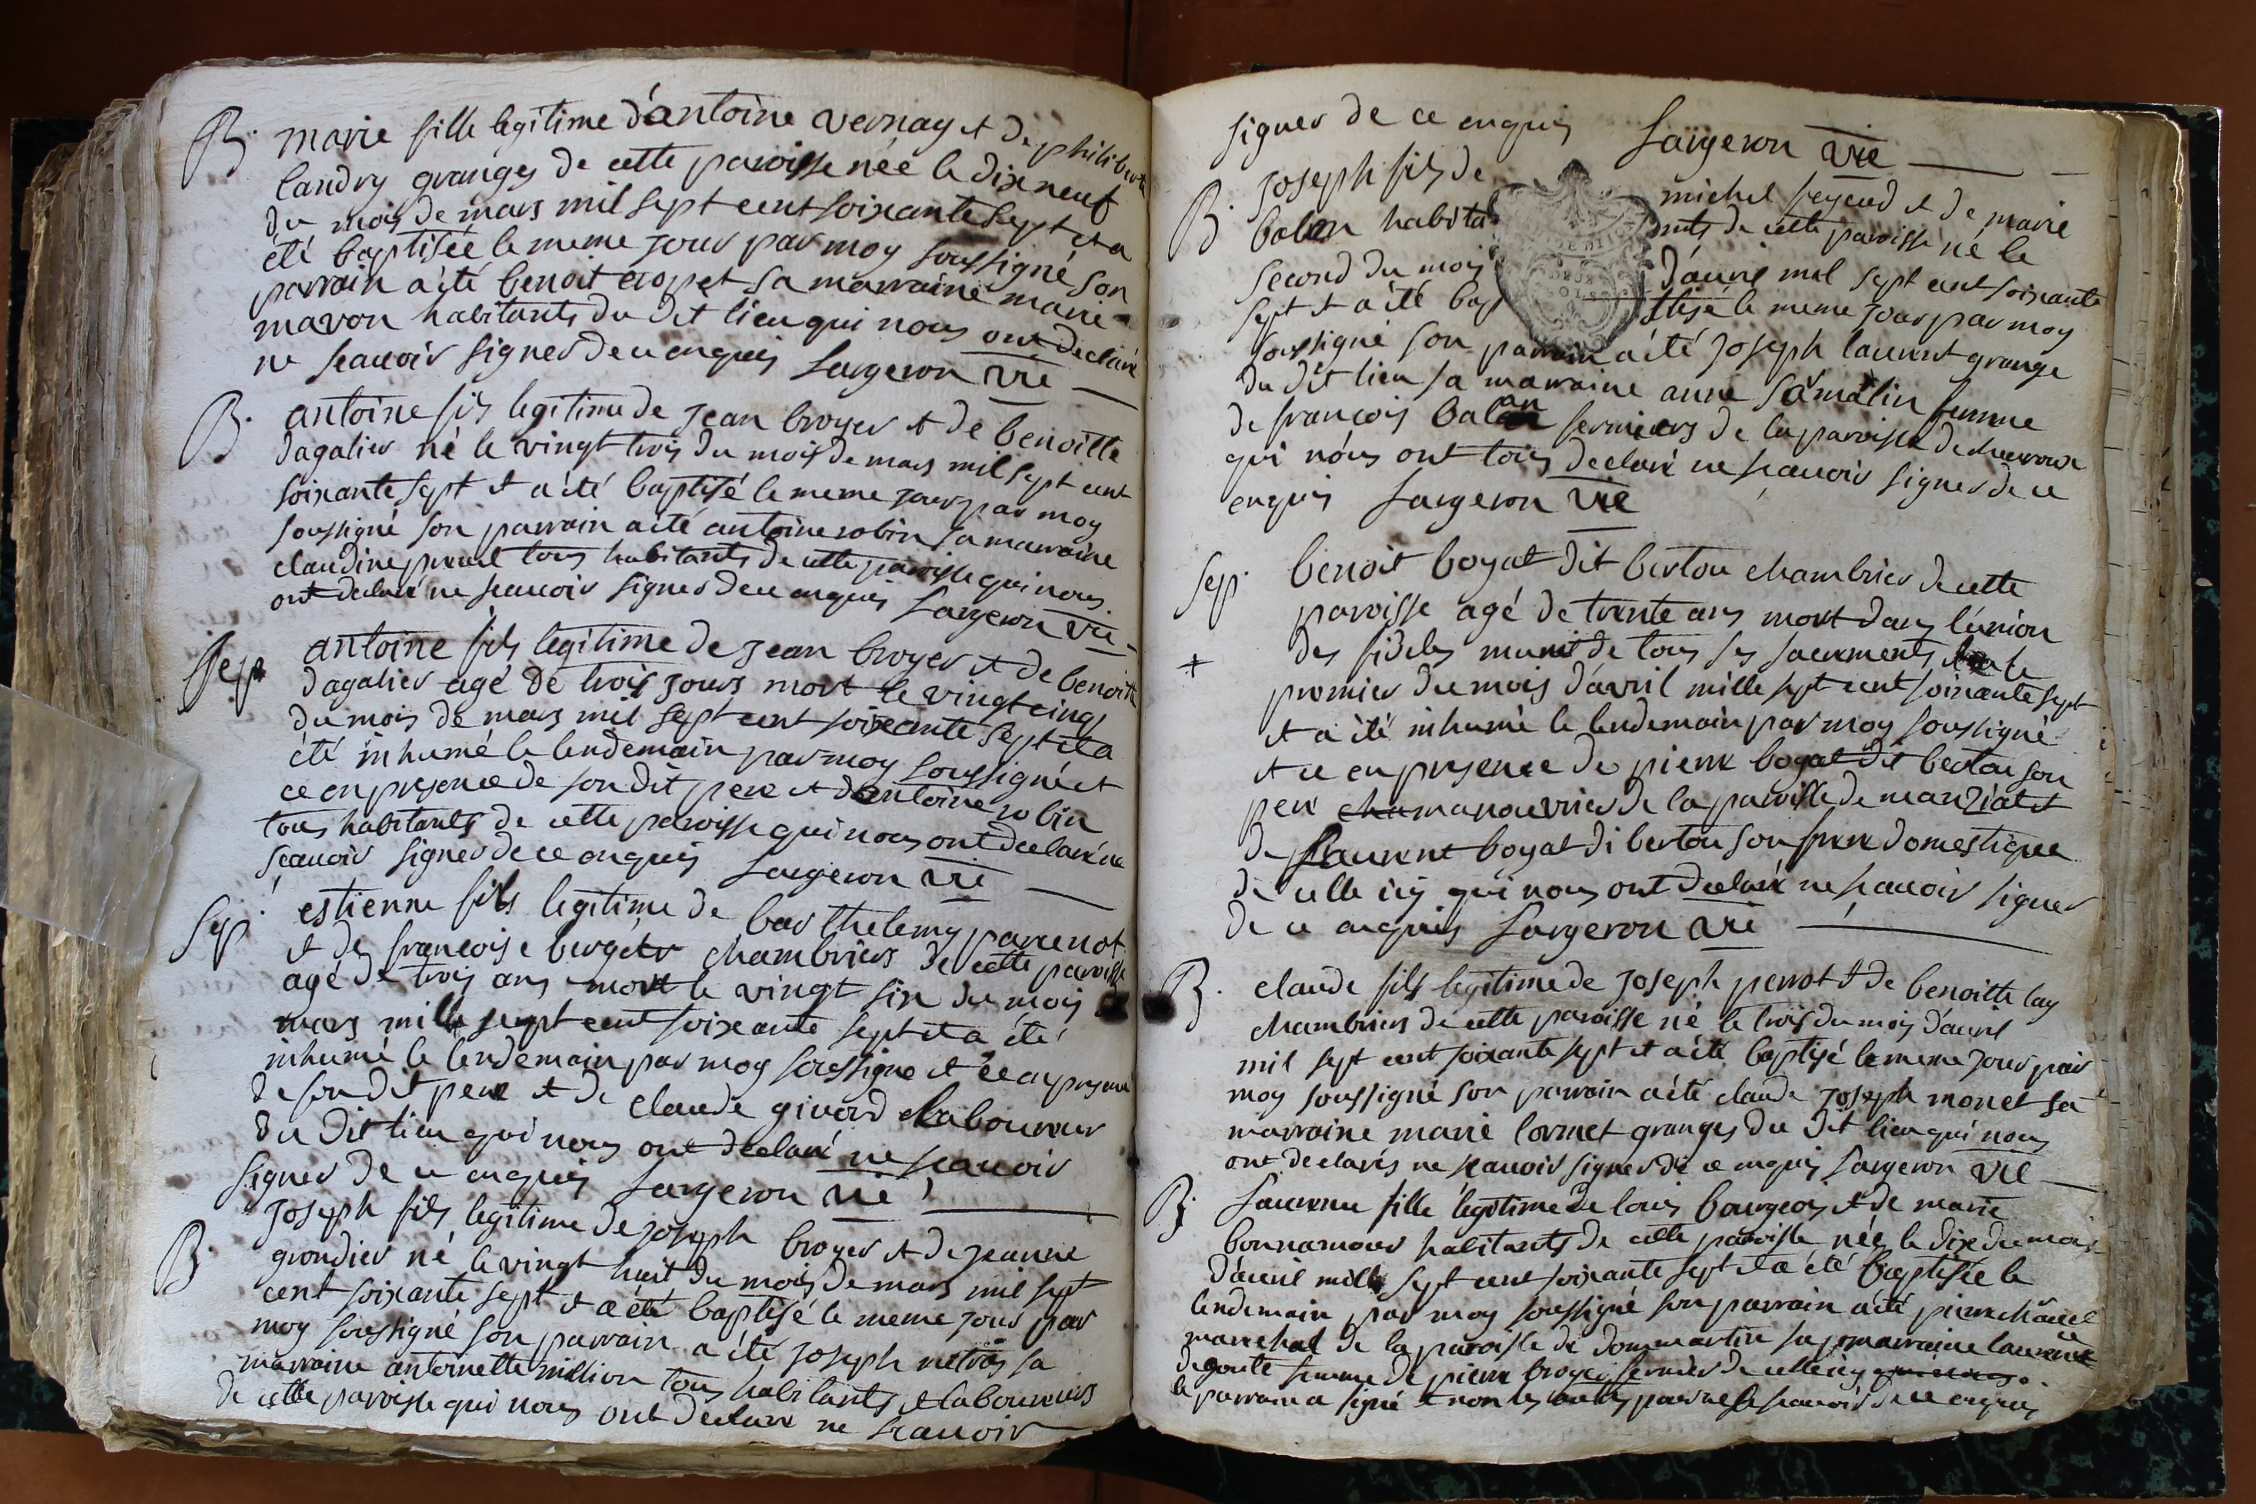 B. marie fille legitime d'antoine vernay et de philiberte
landry granges de cette paroisse née le dix neuf
du mois de mars mil sept cent soixante sept et a
été baptisée le meme jour par moy soussigné son
parrain a été benoit et sa marraine marie
mavon habitants du dit lieu qui nous ont declaré
ne scavoir signer de ce enquis Sargeron vic
B. antoine fils legitime de jean broyer et de benoitte
dagalier né le vingt trois du mois de mars mil sept cent
soixante sept et a été baptisé le meme jour par moy
soussigné son parrain a été antoine robin sa marraine
claudine tous habitants de cette paroisse qui nous
ont declaré ne scavoir signer de ce enquis Sargeron vic
Sep antoine fils legitime de jean broyer et de benoitte
dagalier agé de trois jours mort le vingt cinq
du mois de mars mil sept cent soixante sept et a
été inhumé le lendemain par moy soussigné et
ce en presence de son dit pere et d'antoine robin
tous habitants de cette paroisse qui nous ont declaré ne
scavoir signer de ce enquis Sargeron vic
Sep. estienne fils legitime de barthelemy parcenot
et de françoise bergér chambriers de cette paroisse
agé de trois ans mort le vingt six du mois
mars mille sept cent soixante sept et a été
inhumé le lendemain par moy soussigné et ce en presence
de son dit pere et de claude givord laboureur
du dit lieu qui nous ont declaré ne scavoir
signer de ce enquis Sargeron vic
B. joseph fils legitime de joseph broyer et de jeanne
grondier né le vingt huit du mois de mars mil sept
cent soixante sept et a été baptisé le meme jour par
moy soussigné son parrain a été joseph sa
marraine antoinette million tous habitants et laboureurs
de cette paroisse qui nous ont declaré ne scavoir
signer de ce enquis Sargeron vic
B. joseph fils de michel et de marie
balan habitants de cette paroisse né le
second du mois d'avril mil sept cent soixante
sept et a été baptisé le meme jour par moy
soussigné son parrain a été joseph laurent grange
du dit lieu sa marraine anne femme
de françois balan fermiers de la paroisse de chevroux
qui nous ont tois declaré ne scavoir signer de ce
enquis Sargeron vic
Sep. benoit boyat dit berton chambrier de cette
paroisse agé de trente ans mort dans l'union
des fideles munit de tous ses sacrements le
premier du mois d'avril mille sept cent soixante sept
et a été inhumé le lendemain par moy soussigné
et ce en presence de pierre boyat dit berton son
pere manouvrier de la paroisse de manziat et
de laurent boyat di berton son frere domestique
de celle icy qui nous ont declaré ne scavoir signer
de ce enquis Sargeron vic
B. claude fils legitime de joseph perrot et de benoitte lay
chambriers de cette paroisse né le trois du mois d'avril
mil sept cent soixante sept et a été baptisé le meme jour par
moy soussigné son parrain a été claude joseph monet sa
marraine marie lormet granges du dit lieu qui nous
ont declarés ne scavoir signer de ce enquis Sargeron vic
B. Laurence fille legitime de louis bourgeois et de marie
bonnamour habitants de cette paroisse née le dix du mois
d'avril mille sept cent soixante sept et a été baptisée le
lendemain par moy soussigné son parrain a été pierre
marechal de la paroisse de dommartin sa marraine laurence
degoute femme de pierre broyer fermier de celle icy
le parrain a signé et non les pour ne le scavoir de ce enquis